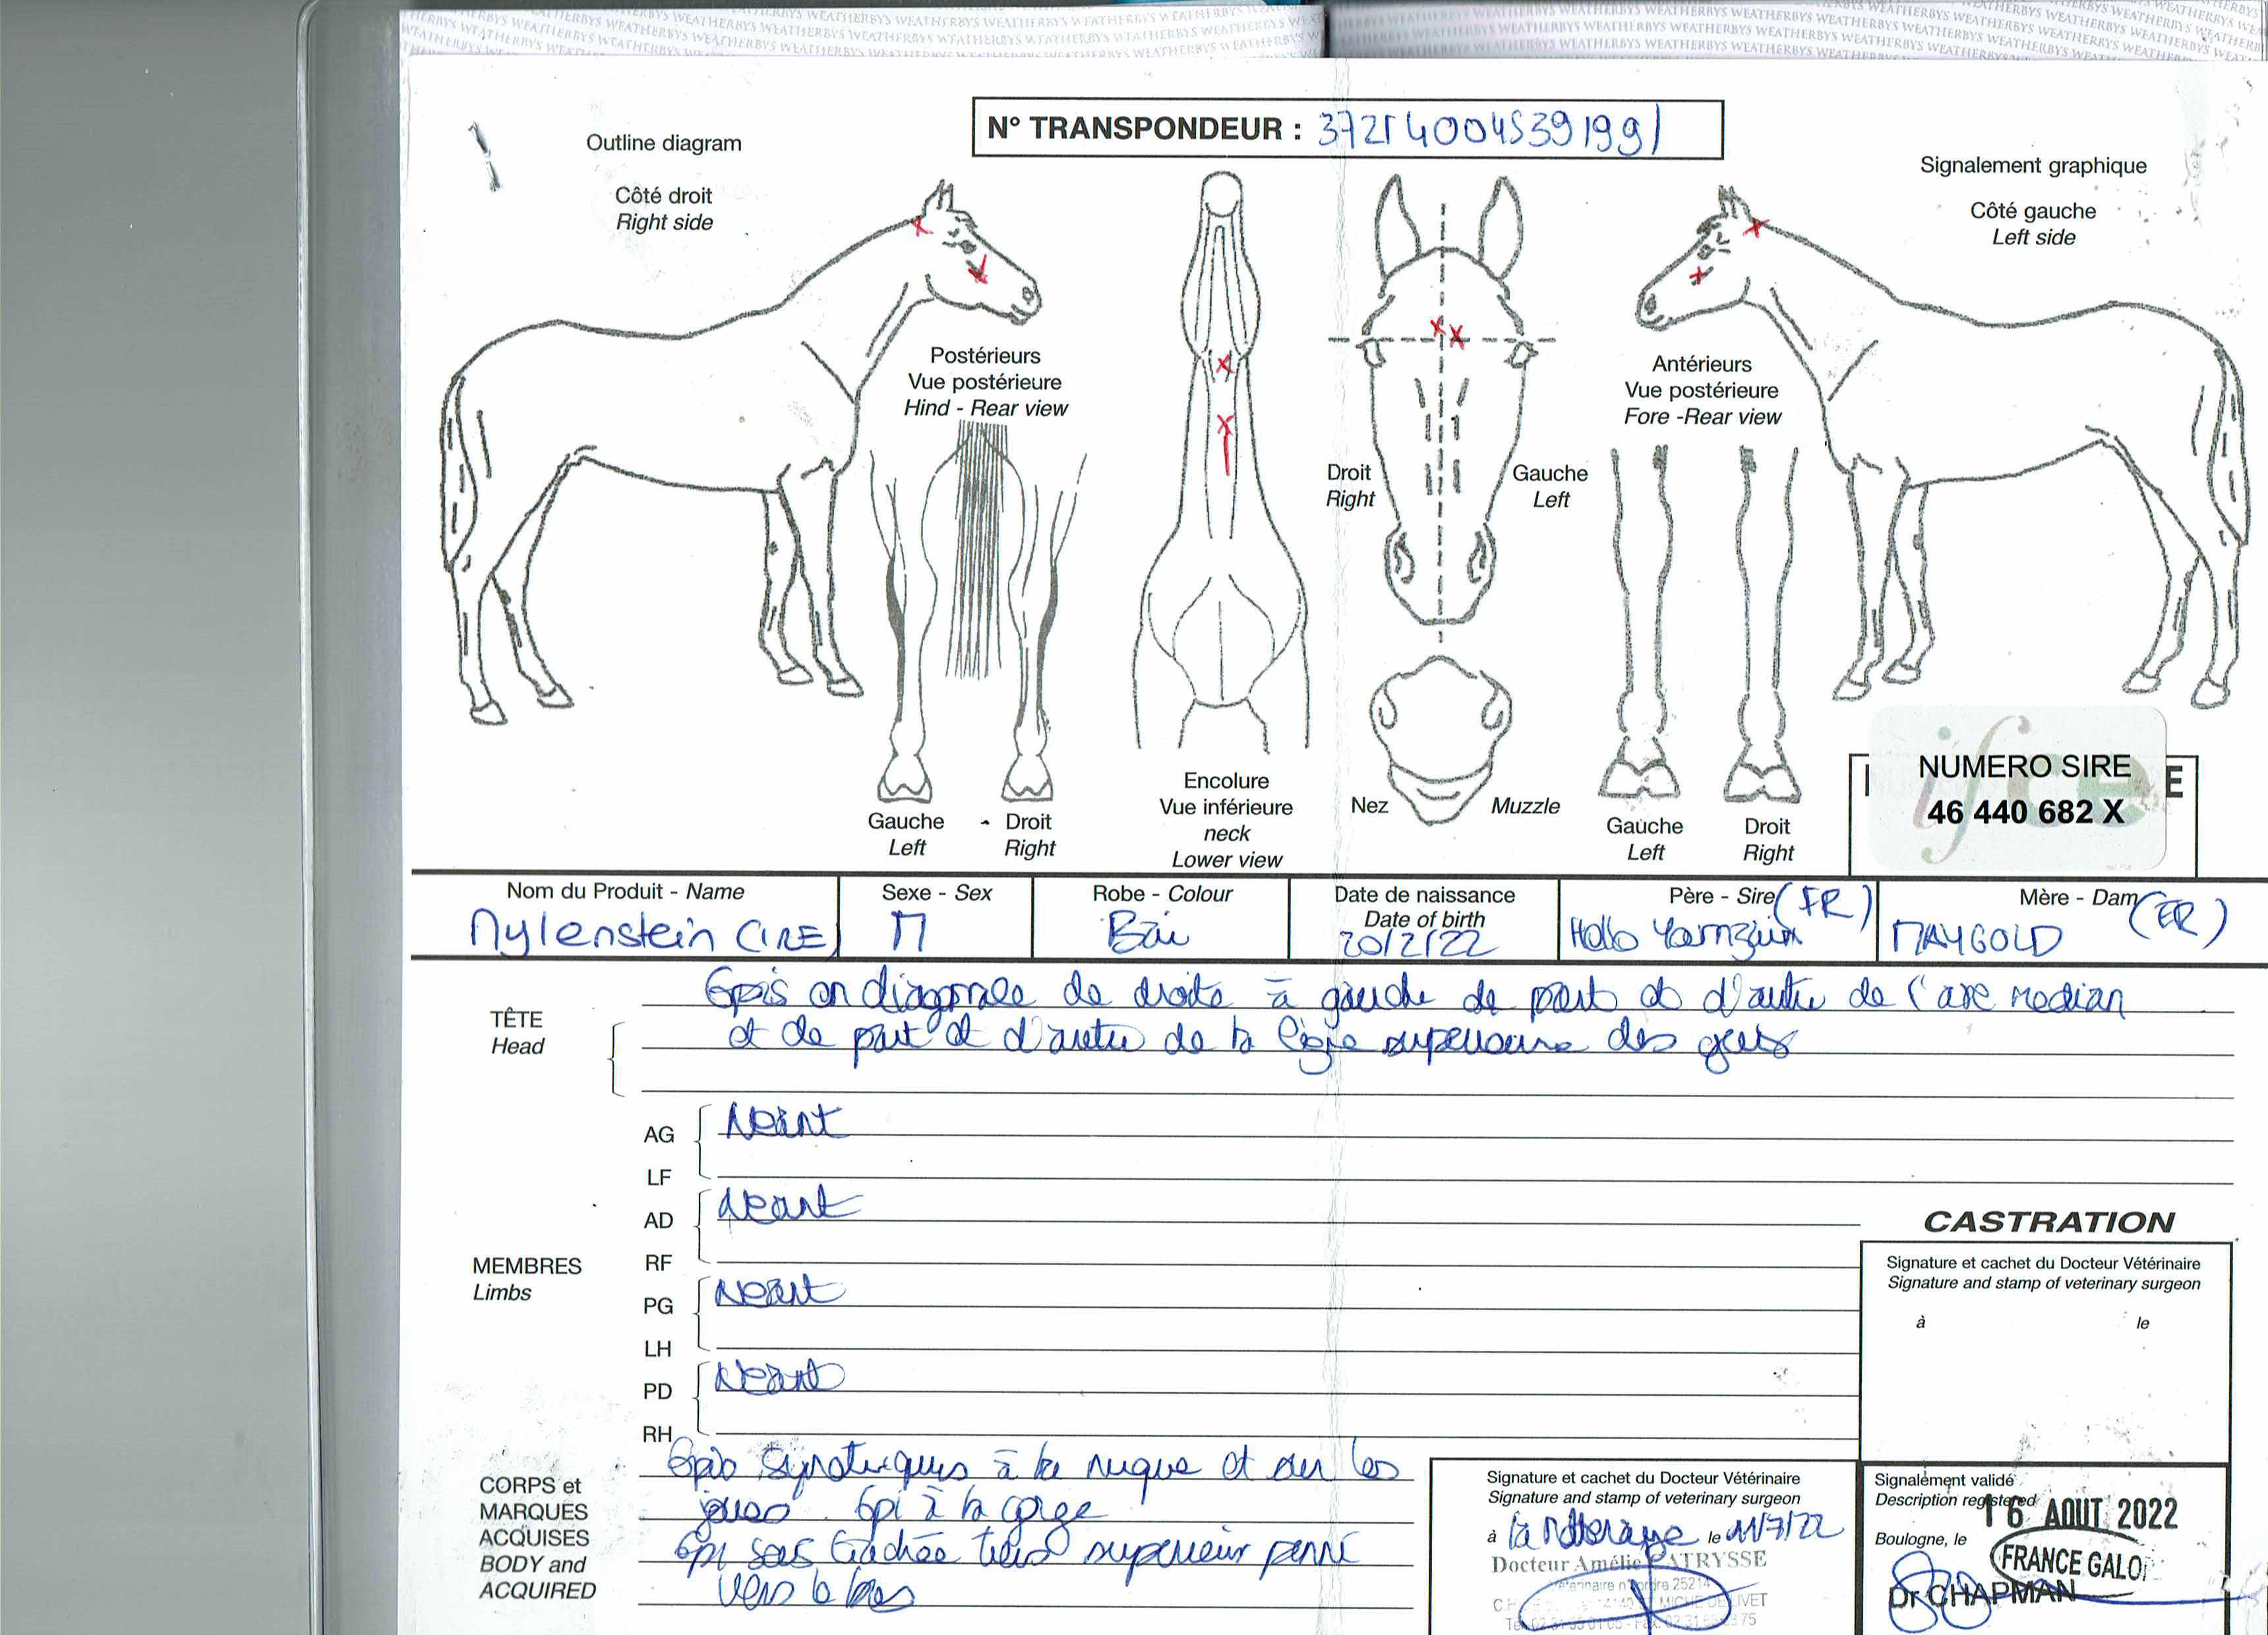 WEATHERBYS WEATHERBYS WEATHERBYS WEATHERBYS WEATHERBYS WEATHERBYS
N° TRANSPONDEUR :
Outline diagram
Signalement graphique
Côté droit
Right side
Côté gauche
Left side
Postérieurs
Vue postérieure
Hind - Rear view
Antérieurs
Vue postérieure
Fore -Rear view
Droit
Right
Gauche
Left
NUMERO SIRE
46 440 682 X
E
Encolure
Vue inférieure
neck
Lower view
Nez
Muzzle
Gauche
Left
Droit
Right
Gauche
Left
Droit
Right
Nom du Produit - Name
Sexe - Sex
Robe - Colour
Date de naissance
Date of birth
Père - Sire (FR)
Mère - Dam (FR)
Mylenstein (IRE)
M
Bai
20/2/22
MAYGOLD
TÊTE
Head
Epis en diagonale de droite à gauche de part et d'autre de l'axe median
et de part et d'autre de la ligne superieure des yeux
MEMBRES
Limbs
AG
Néant
LF
AD
Néant
RF
PG
Néant
LH
PD
Néant
RH
CASTRATION
Signature et cachet du Docteur Vétérinaire
Signature and stamp of veterinary surgeon
à
le
CORPS et
MARQUES
ACQUISES
BODY and
ACQUIRED
Epis symétriques à la nuque et sur les
joues. Epi à la gorge
Epi sous trachée tiers superieur penné
vers le bas
Signature et cachet du Docteur Vétérinaire
Signature and stamp of veterinary surgeon
à la le 11/7/22
Docteur Amélie
Signalement validé
Description registered
16 AOUT 2022
Boulogne, le
FRANCE GALOP
Dr CHAPMAN